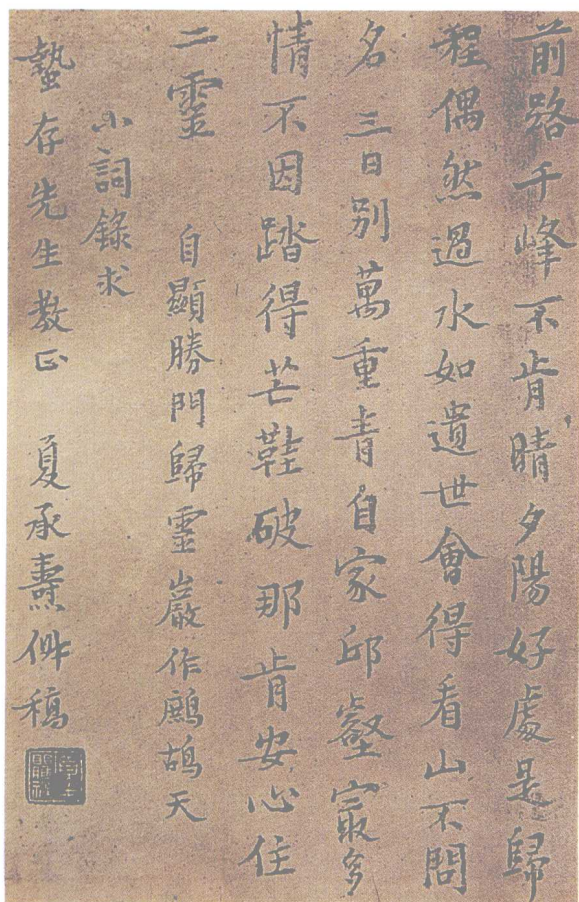 前路千峰不肯晴夕陽好處是歸
程偶然過水如遺世會得看山不問
名 三日別萬重青自家邱壑㝡多
情不因踏得芒鞋破那肯安心住
二靈 自顯勝門歸靈巖作鷓鴣天
小詞錄求
蟄存先生教正 夏承燾 稿